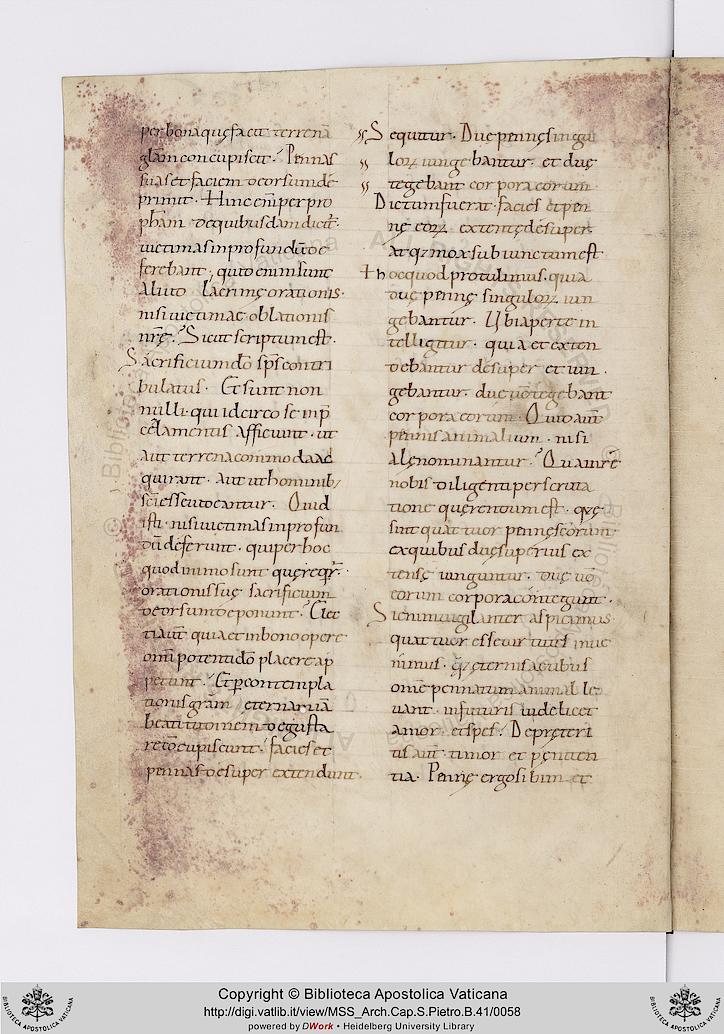 per bona quę facit terrena
głam concupiscit. Pennas
suas et faciem deorsum de
primit. Hinc enī per pro
phām de quibusdam dicit̄.
uictimas in profundū de
ferebant. quid enim sunt
aliud lacrimę orationis.
nisi uictimae oblationis
nrę̄. Sicut scriptum est.
Sacrificium dō sp̄s contri
bulatus. Et sunt non
nulli. qui idcirco se in p̄
cēlamentis afficiunt. ut
aut terrena commoda ad
quirant. aut ut hominib;
sc̄i esse uideantur. Quid
isti. nisi uictimas in profun
dū deferunt. qui per hoc
quod in imo sunt quę req̄r̄.
orationis suę sacrificium
deorsum deponunt. Elec
ti aut̄ quia et in bono opere
om̄potenti dō placere ap
petunt. Et p̱ contempla
tionis gr̄am eternā iā
beatitudinem degusta
re cōcupiscunt. facies et
pennas desuper extendunt.
Sequitur. Duę pennę singu
lorꝝ iungebantur. et duę
tegebant corpora eorum
Dictum fuerat. facies et pen
nę eorꝝ extentę desuper.
atq; mox subiunctum est
Hoc quod protulimus. quia
duę pennę singulorꝝ iun
gebantur. Ubi aperte in
telligitur. quia et exten
debantur desuper et iun
gebantur. duę ūo tegebant
corpora eorum. Quid aut̄
pennis animalium. nisi
alę nominantur. Qua in rē
nobis diligenti perscruta
tione querendum est. quę
sint quattuor pennę eorum.
ex quibus duę superius ex
tensę iunguntur. duę ūo
eorum corpora cōtegunt.
Si enim uigilanter aspicimus
quattuor esse uirtutes inue
nimus. q̄ę̄ a ternis actibus
om̄e pennatum animal le
uant. in futuris uidelicet
amor et spes. De pręteri
tis aut̄ timor et pęniten
tia. Pennę ergo sibim et
Copyright © Biblioteca Apostolica Vaticana
http://digi.vatlib.it/view/MSS_Arch.Cap.S.Pietro.B.41/0058
powered by DWork • Heidelberg University Library